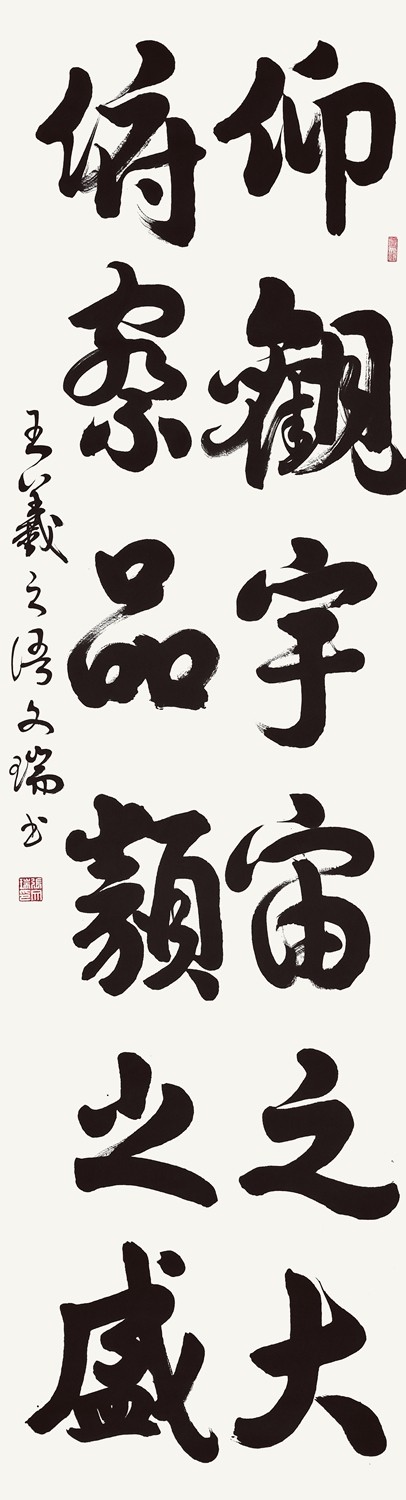 仰觀宇宙之大
俯察品類之盛
王羲之語文瑞書